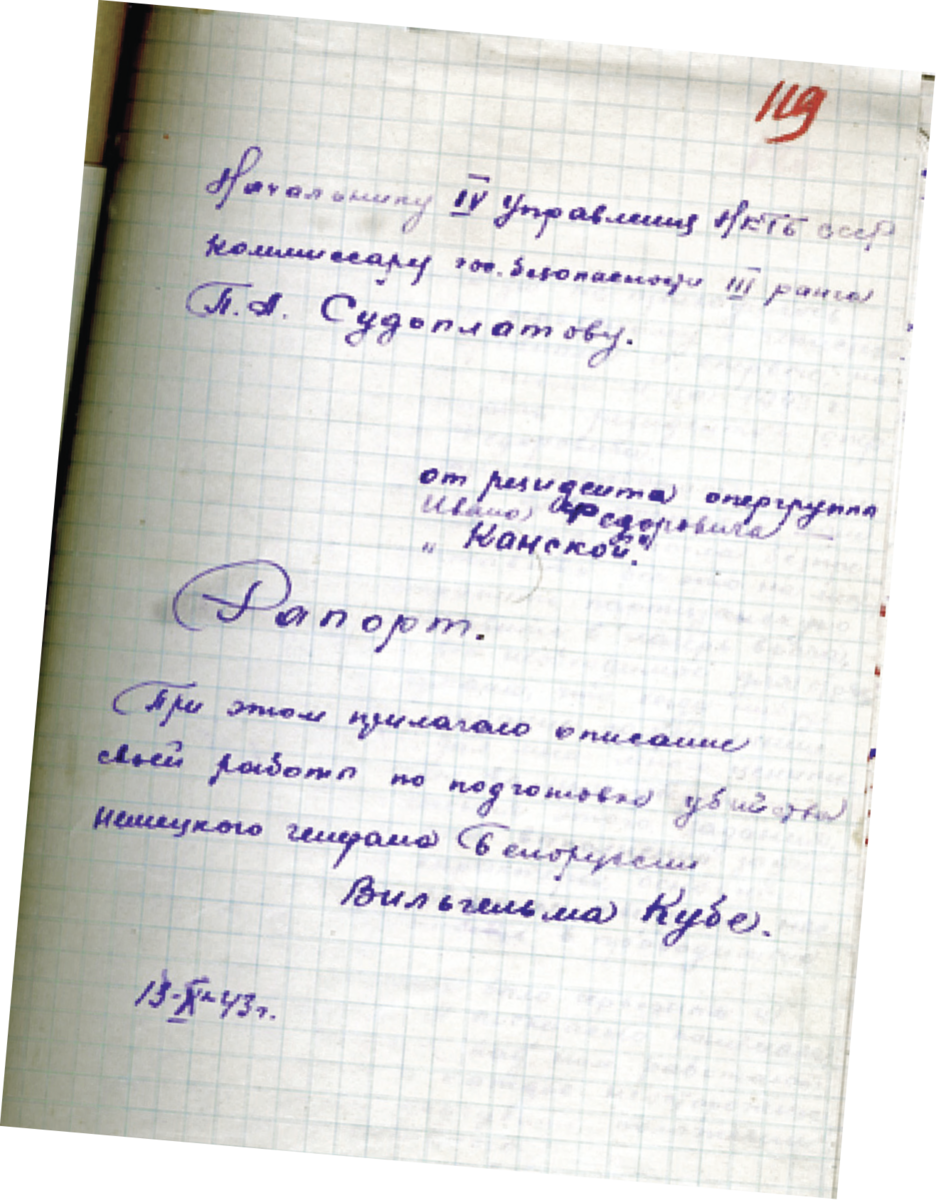 119
Начальнику IV Управления НКГБ СССР
комиссару гос. безопасности III ранга
П. А. Судоплатову.
от резидента опергруппы
Ивана Федоровича
„Канской".
Рапорт.
При этом прилагаю описание
своей работы по подготовке убийства
немецкого генерала Белоруссии
Вильгельма Кубе.